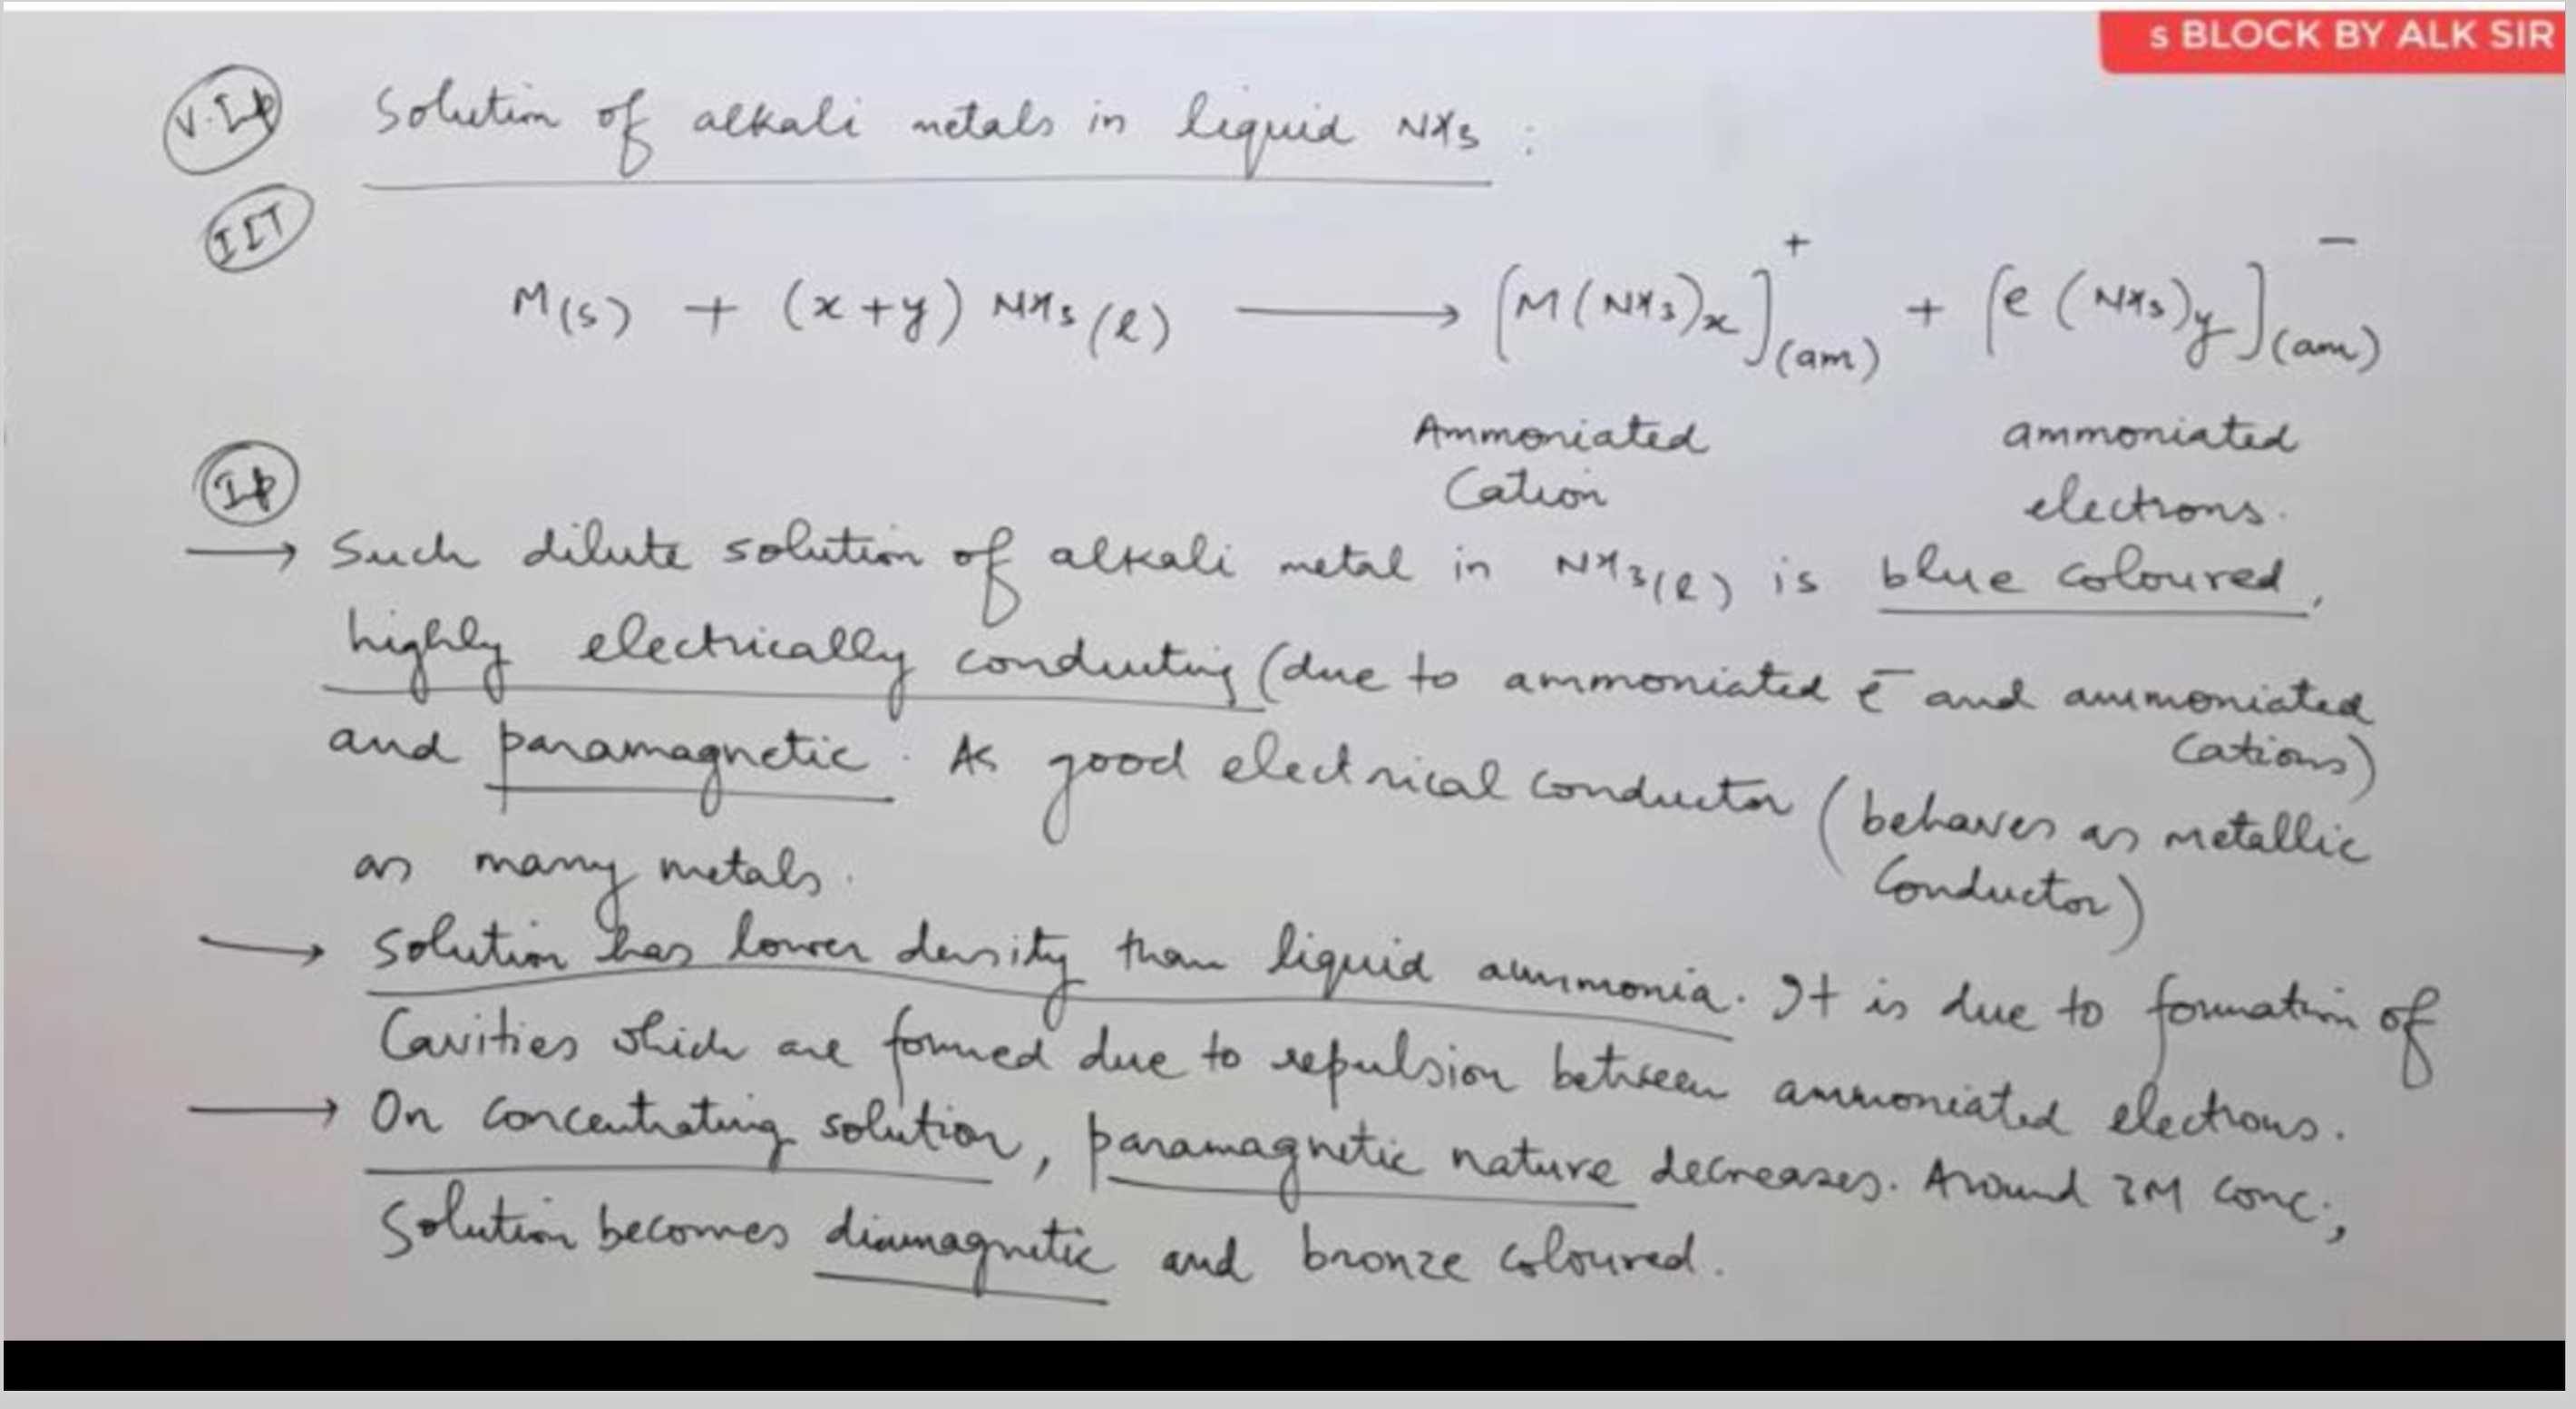 s BLOCK BY ALK SIR
V.Ip Solution of alkali metals in liquid NH3 :
IIT
M(s) + (x+y) NH3(l) ⟶ [M(NH3)x]+(am) + [e(NH3)y]−(am)
Ammoniated ammoniated
Cation electrons.
Ip
→ Such dilute solution of alkali metal in NH3(l) is blue coloured,
highly electrically conducting (due to ammoniated e− and ammoniated
cations)
and paramagnetic. As good electrical conductor (behaves as metallic
Conductor)
as many metals.
→ Solution has lower density than liquid ammonia. It is due to formation of
Cavities which are formed due to repulsion between ammoniated electrons.
→ On concentrating solution, paramagnetic nature decreases. Around 3M conc.,
Solution becomes diamagnetic and bronze coloured.